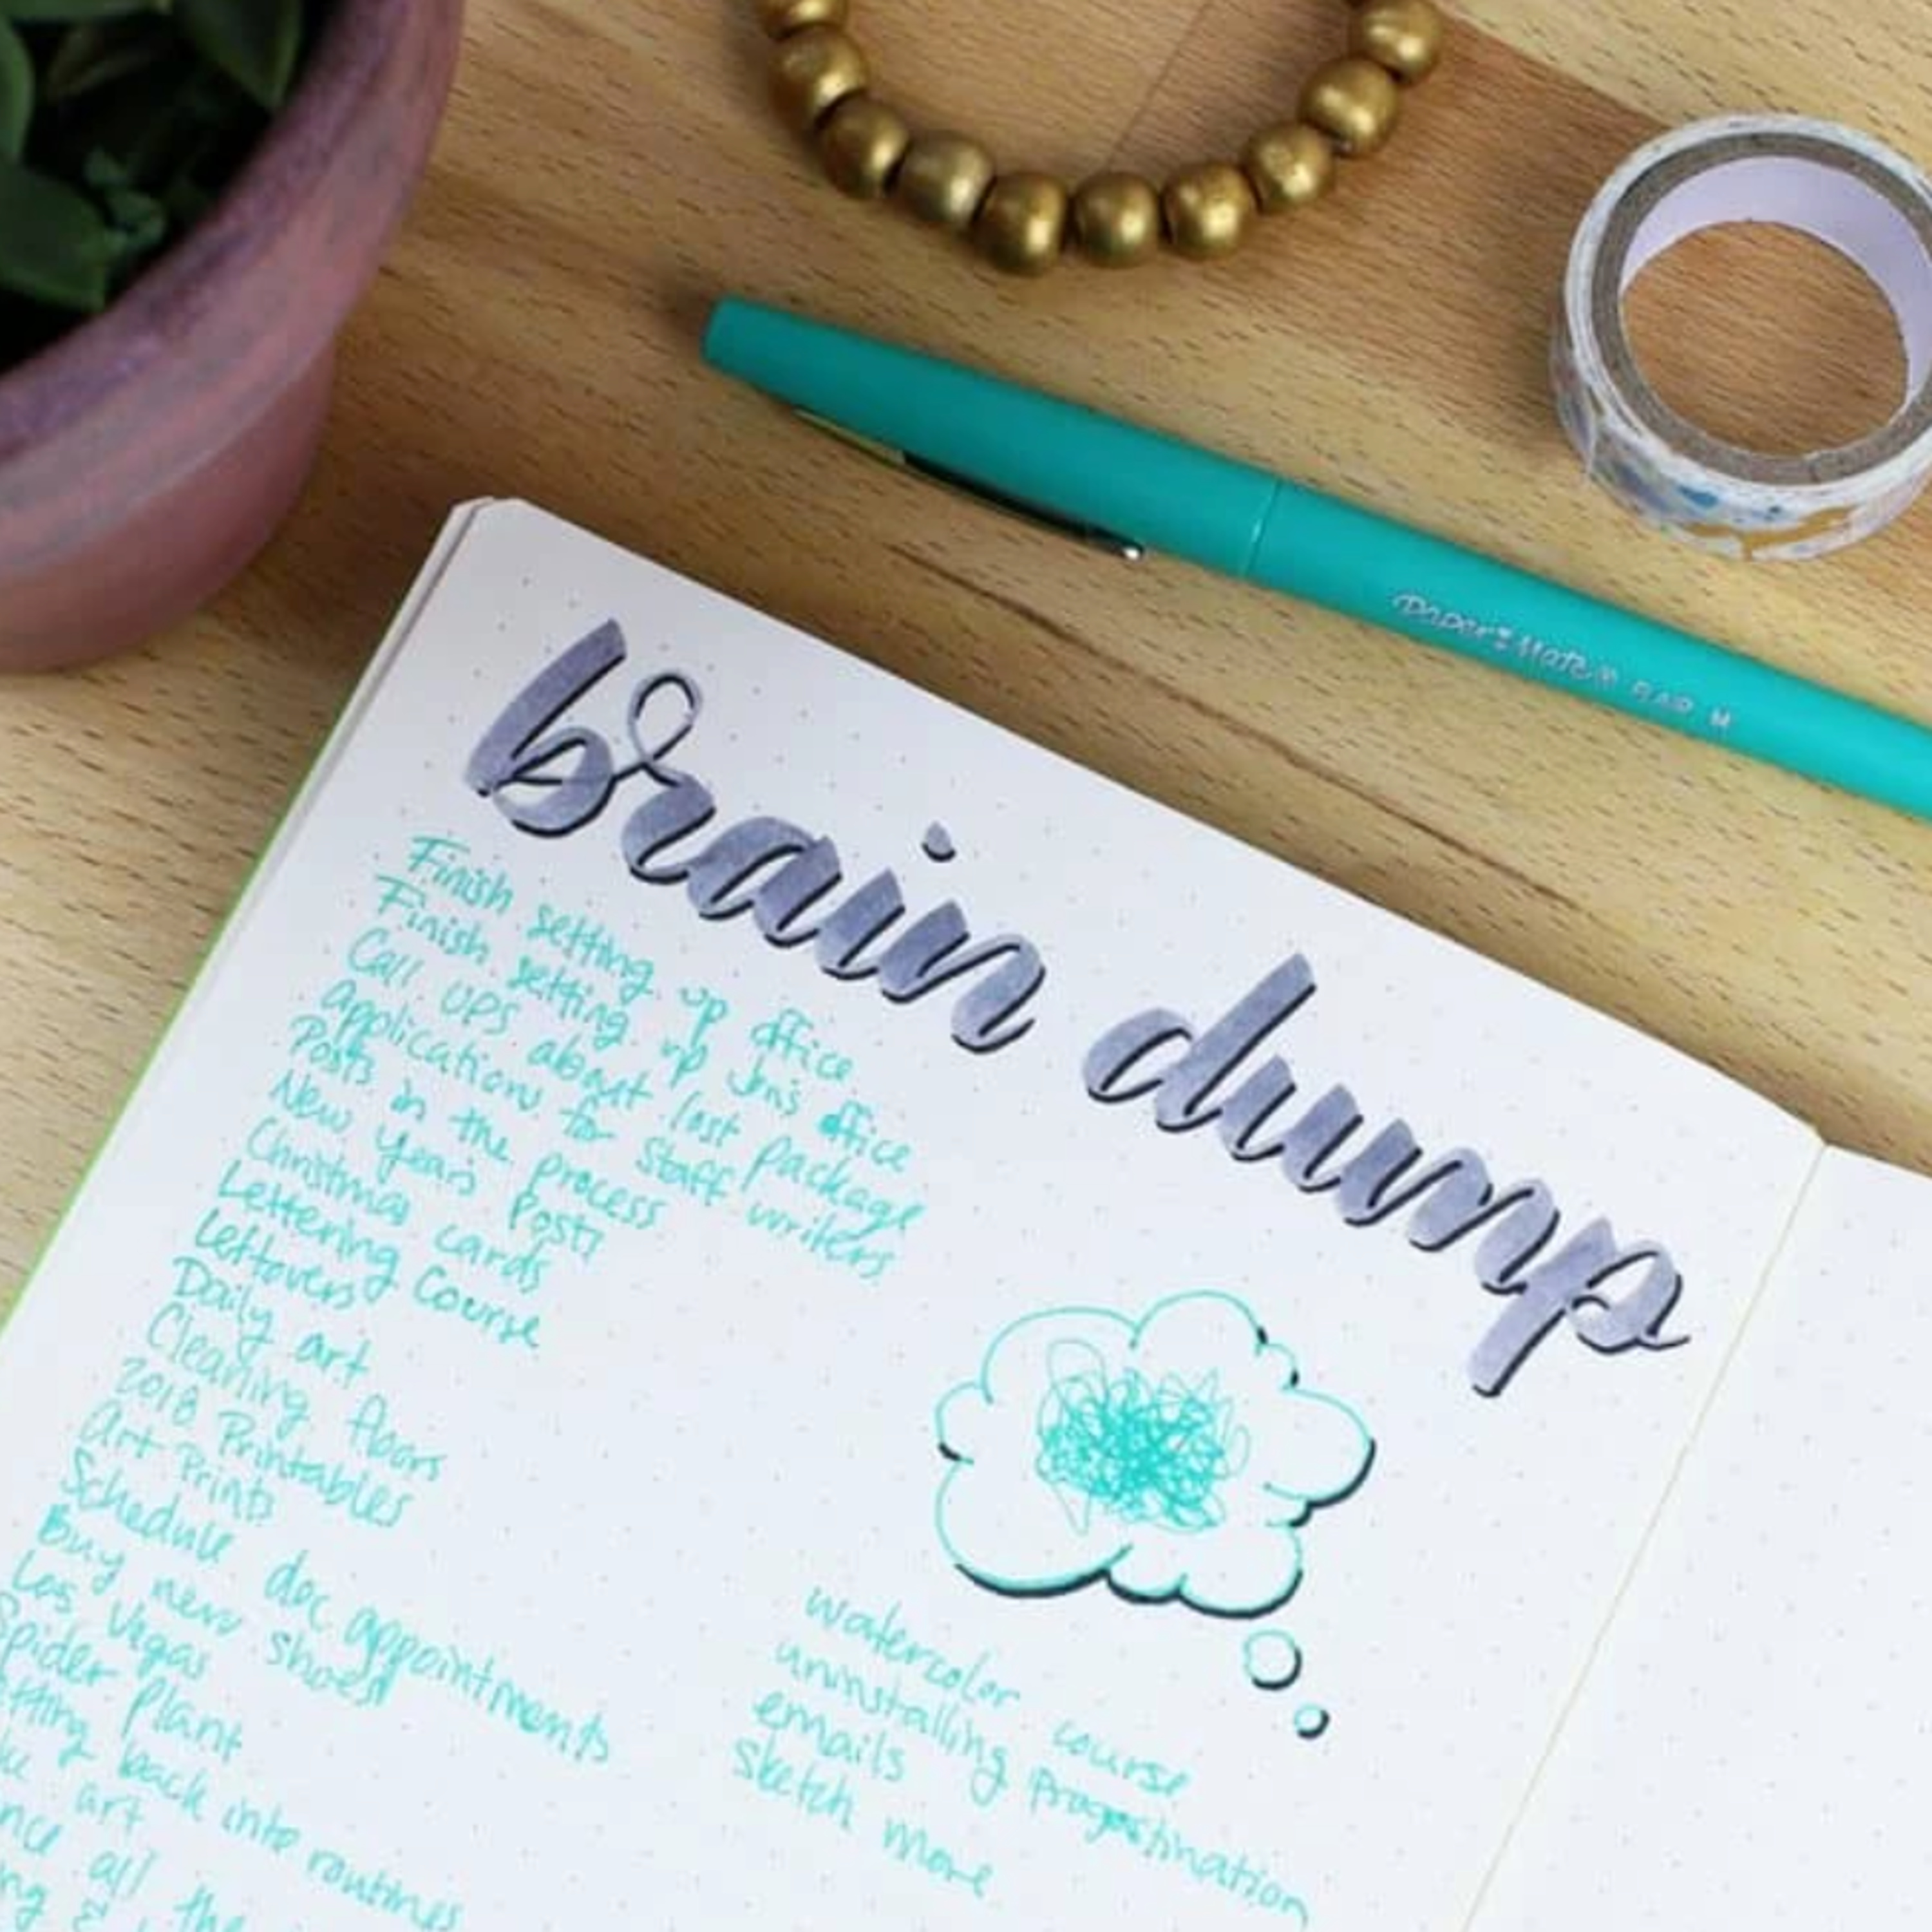 Paper:Mate® FLAIR M
brain dump
Finish setting up office
Finish setting up Jon's office
Call UPS about lost package
Applications for staff writers
Posts in the process
New Years Posts
Christmas cards
Lettering Course
Leftovers
Daily art
Cleaning floors
2018 Printables
Art Prints
Schedule doc appointments
Buy new shoes!
Las Vegas
Spider Plant
back into routines
art
all the
watercolor course
uninstalling Progestination
emails
sketch more